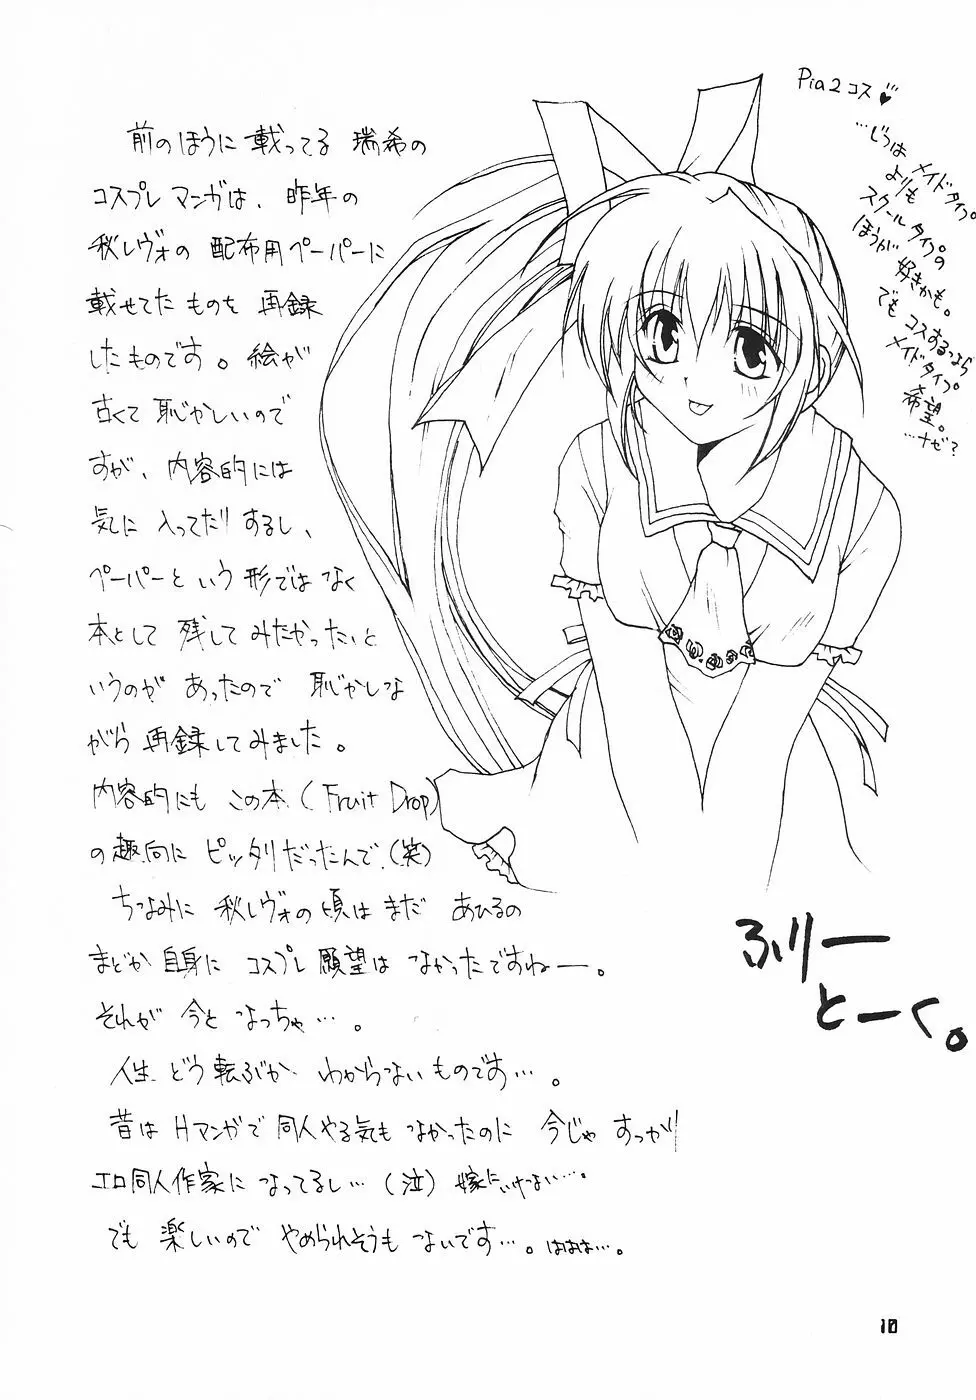 前のほうに載ってる瑞希の
コスプレマンガは、昨年の
秋レヴォの配布用ペーパーに
載せてたものを再録
したものです。絵が
古くて恥かしいので
すが、内容的には
気に入ってたりするし、
ペーパーという形ではなく
本として残してみたかったいと
いうのがあったので恥かしな
がら再録してみました。
内容的にもこの本(Fruit Drop)
の趣向にピッタリだったんで(笑)
ちなみに秋レヴォの頃はまだあひるの
まどか自身にコスプレ願望はなかったですねー。
それが今となっちゃ…。
人生どう転ぶかわからないものです…。
昔はHマンガで同人やる気もなかったのに今じゃすっかり
エロ同人作家になってるし…(泣)嫁にいけない…。
でも楽しいのでやめられそうもないです…。はぁぁ…。
Pia2コス♥
…じつは
メイドタイプ
よりも
スクールタイプの
ほうが好きかも。
でもコスするなら
メイドタイプ
希望。
…ナゼ?
ふりー
とーく。
10